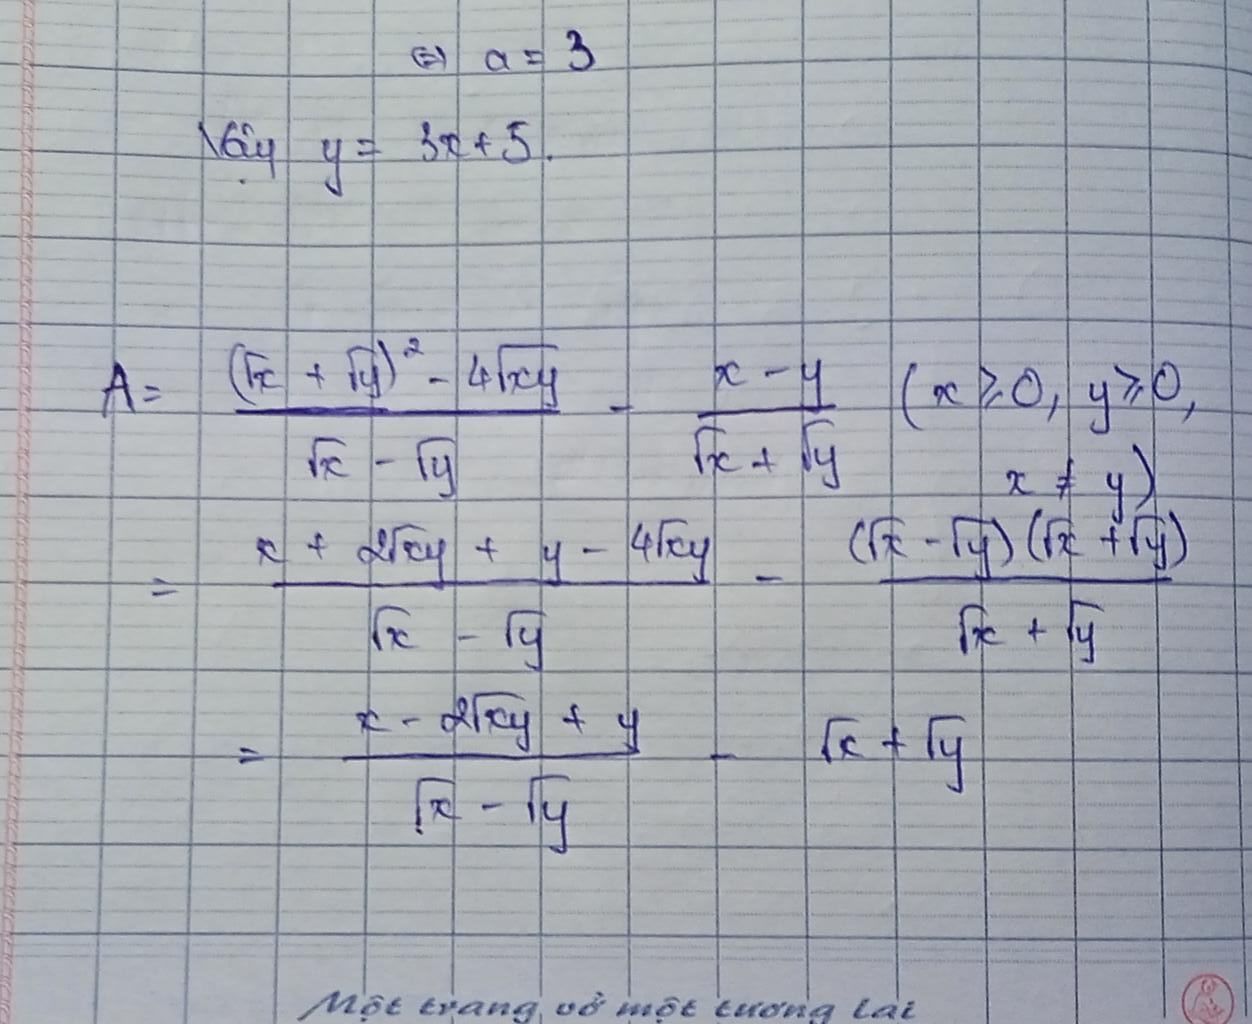 ⇔ a = 3
Vậy y = 3x + 5.
A = ((√x + √y)² - 4√xy)/(√x - √y) - (x - y)/(√x + √y) (x ≥ 0, y ≥ 0,
x ≠ y)
= (x + 2√xy + y - 4√xy)/(√x - √y) - ((√x - √y)(√x + √y))/(√x + √y)
= (x - 2√xy + y)/(√x - √y) - √x + √y
Một trang vở một tương lai